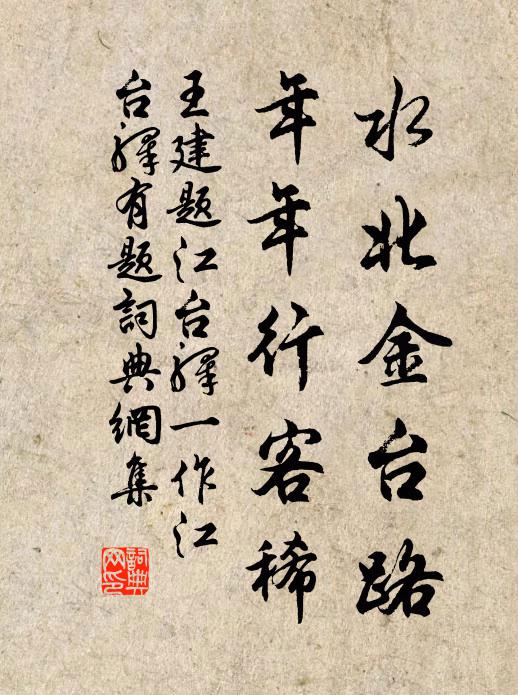 水北金台路
年年行客稀
王建题江台驛一作江
台驛有题詞典網集
詞典网印